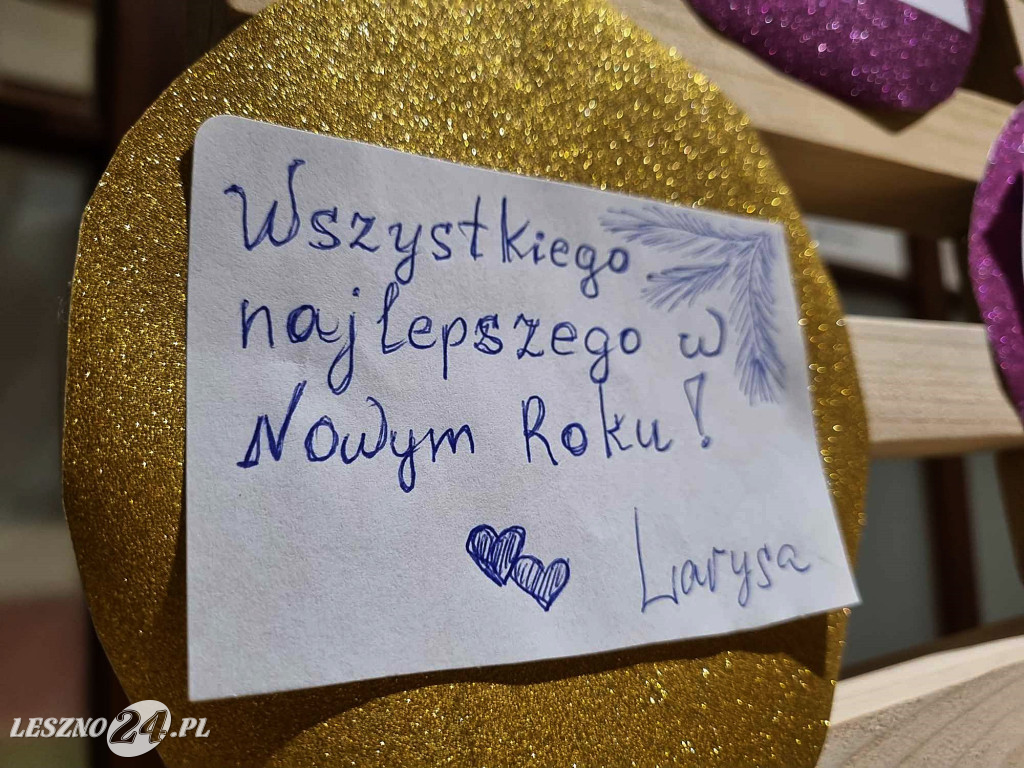 Wszystkiego
najlepszego w
Nowym Roku!
Larysa
LESZNO24.PL